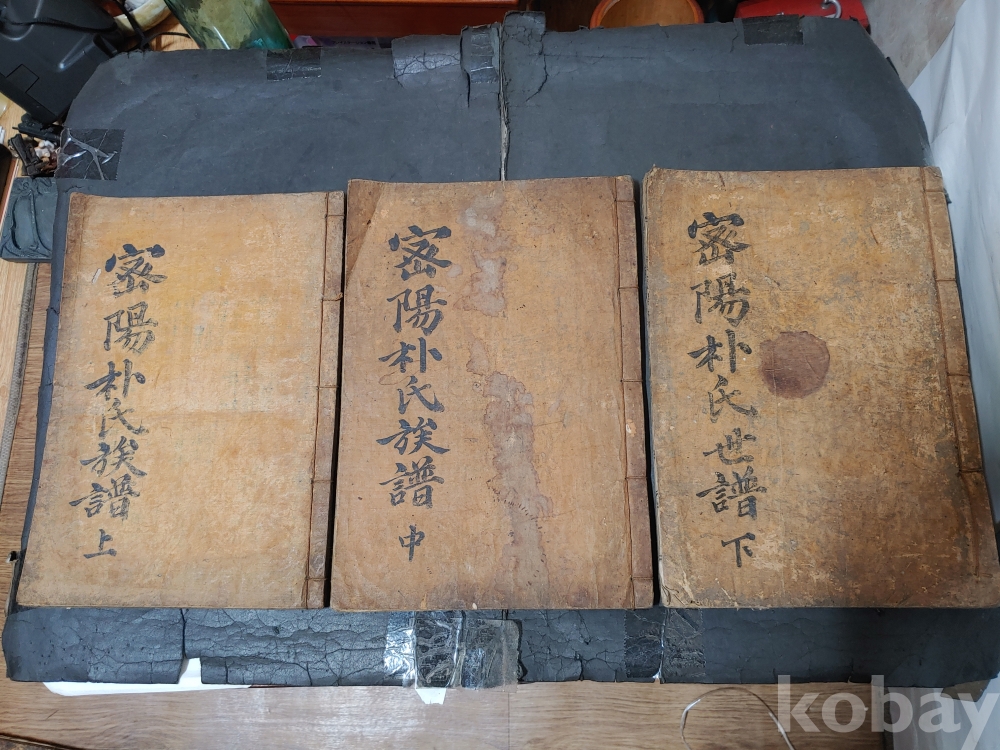 密陽朴氏族譜 上
密陽朴氏族譜 中
密陽朴氏世譜 下
kobay